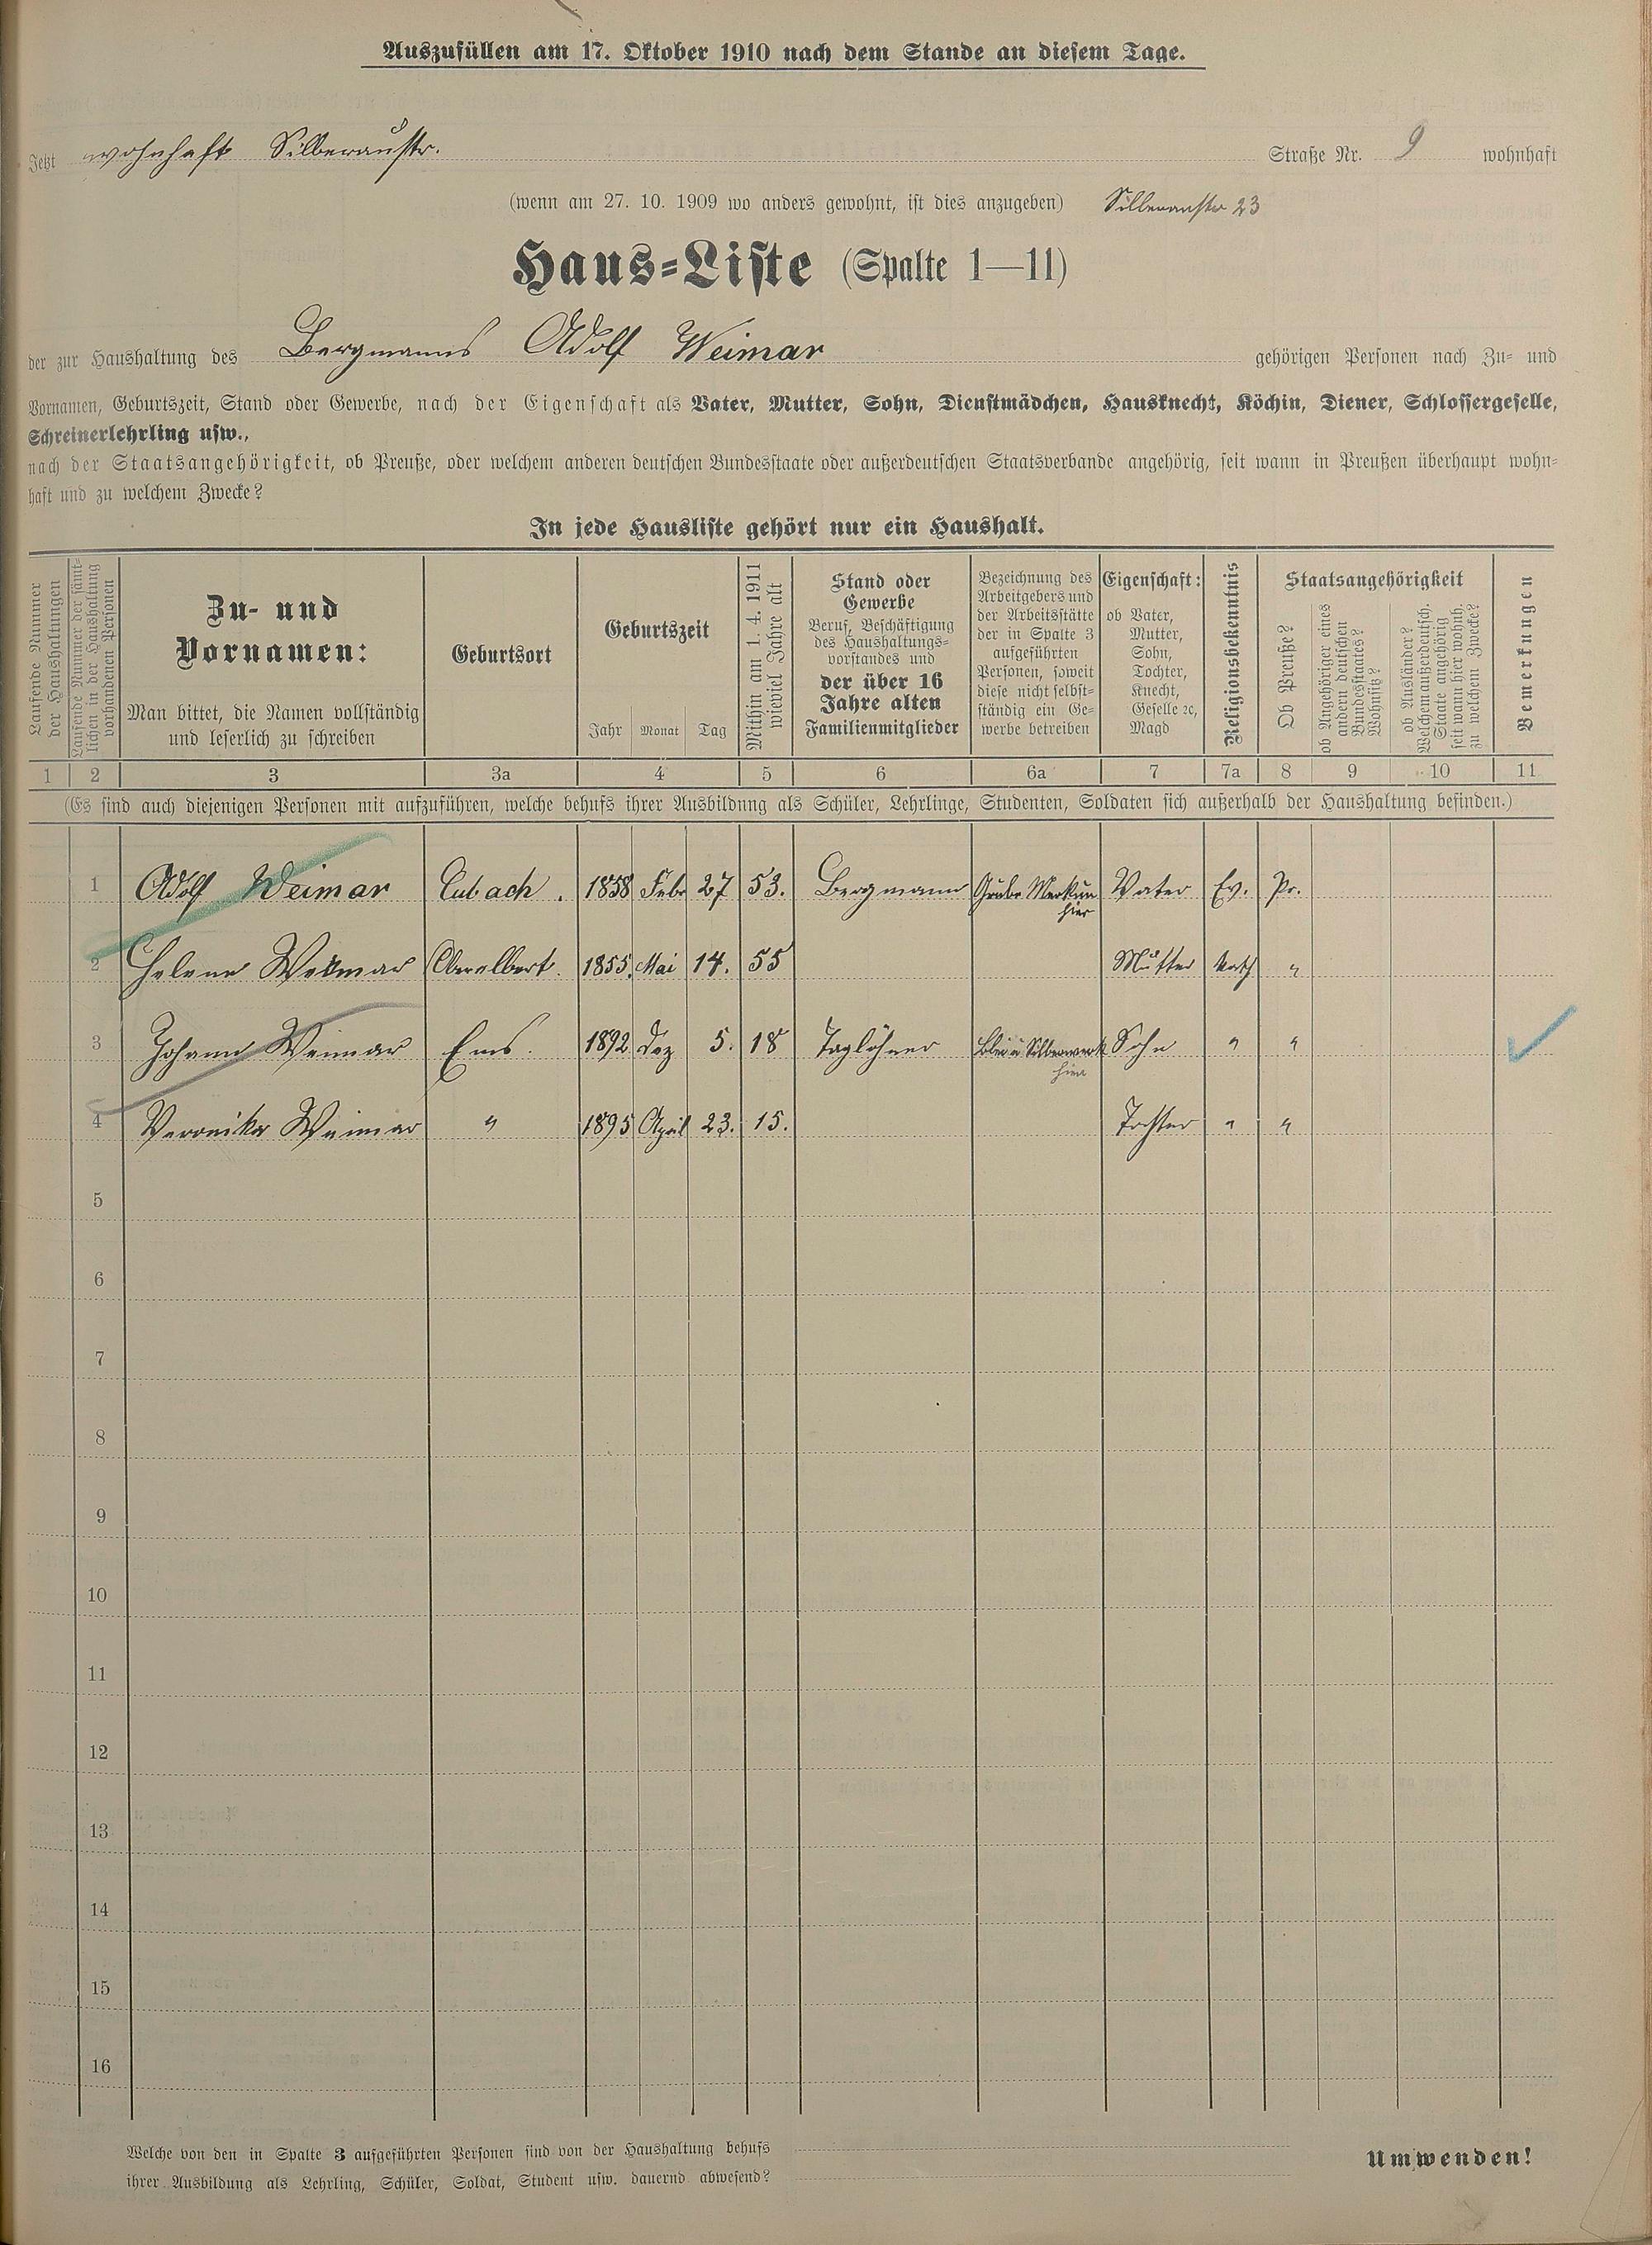 Auszufüllen am 17. Oktober 1910 nach dem Stande an diesem Tage.
Jetzt wohnhaft Silberaustr. Straße Nr. 9 wohnhaft
(wenn am 27. 10. 1909 wo anders gewohnt, ist dies anzugeben) Silberaustr 23
Haus-Liste (Spalte 1—11)
der zur Haushaltung des Bergmanns Adolf Weimar gehörigen Personen nach Zu- und
Vornamen, Geburtszeit, Stand oder Gewerbe, nach der Eigenschaft als Vater, Mutter, Sohn, Dienstmädchen, Hausknecht, Köchin, Diener, Schlossergeselle,
Schreinerlehrling usw.,
nach der Staatsangehörigkeit, ob Preuße, oder welchem anderen deutschen Bundesstaate oder außerdeutschen Staatsverbande angehörig, seit wann in Preußen überhaupt wohn-
haft und zu welchem Zwecke?
In jede Hausliste gehört nur ein Haushalt.
Laufende Nummer
der Haushaltungen
Laufende Nummer der sämt-
lichen in der Haushaltung
vorhandenen Personen
Zu- und
Vornamen:
Man bittet, die Namen vollständig
und leserlich zu schreiben
Geburtsort
Geburtszeit
Jahr Monat Tag
Mithin am 1. 4. 1911
wieviel Jahre alt
Stand oder
Gewerbe
Beruf, Beschäftigung
des Haushaltungs-
vorstandes und
der über 16
Jahre alten
Familienmitglieder
Bezeichnung des
Arbeitgebers und
der Arbeitsstätte
der in Spalte 3
aufgeführten
Personen, soweit
diese nicht selbst-
ständig ein Ge-
werbe betreiben
Eigenschaft:
ob Vater,
Mutter,
Sohn,
Tochter,
Knecht,
Geselle ꝛc,
Magd
Religionsbekenntnis
Staatsangehörigkeit
Ob Preuße?
ob Angehöriger eines
andern deutschen
Bundesstaates?
Wohnsitz?
ob Ausländer?
Welchem außerdeutsch.
Staate angehörig
seit wann hier wohnh.
zu welchem Zwecke?
Bemerkungen
1 2 3 3a 4 5 6 6a 7 7a 8 9 10 11
(Es sind auch diejenigen Personen mit aufzuführen, welche behufs ihrer Ausbildung als Schüler, Lehrlinge, Studenten, Soldaten sich außerhalb der Haushaltung befinden.)
1 Adolf Weimar Cubach. 1858 Febr 27 53. Bergmann Grube Merkur Vater Ev. Pr.
hier
2 Helene Weimar Oberelbert. 1855. Mai 14. 55 Mutter Kath "
3 Johann Weimar Ems. 1892 Dez 5. 18 Taglöhner Blei u Silberwerk Sohn " "
hier
4 Veronika Weimar " 1895 April 23. 15. Tochter " "
5
6
7
8
9
10
11
12
13
14
15
16
Welche von den in Spalte 3 aufgeführten Personen sind von der Haushaltung behufs
ihrer Ausbildung als Lehrling, Schüler, Soldat, Student usw. dauernd abwesend?
Umwenden!